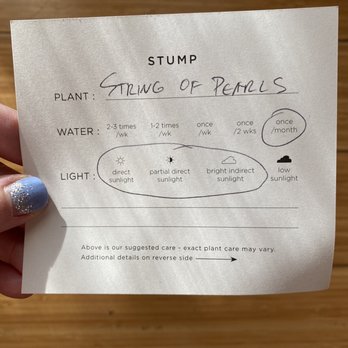 STUMP
PLANT : STRING OF PEARLS
WATER : 2-3 times /wk 1-2 times /wk once /wk once /2 wks once /month
LIGHT : direct sunlight partial direct sunlight bright indirect sunlight low sunlight
Above is our suggested care - exact plant care may vary.
Additional details on reverse side